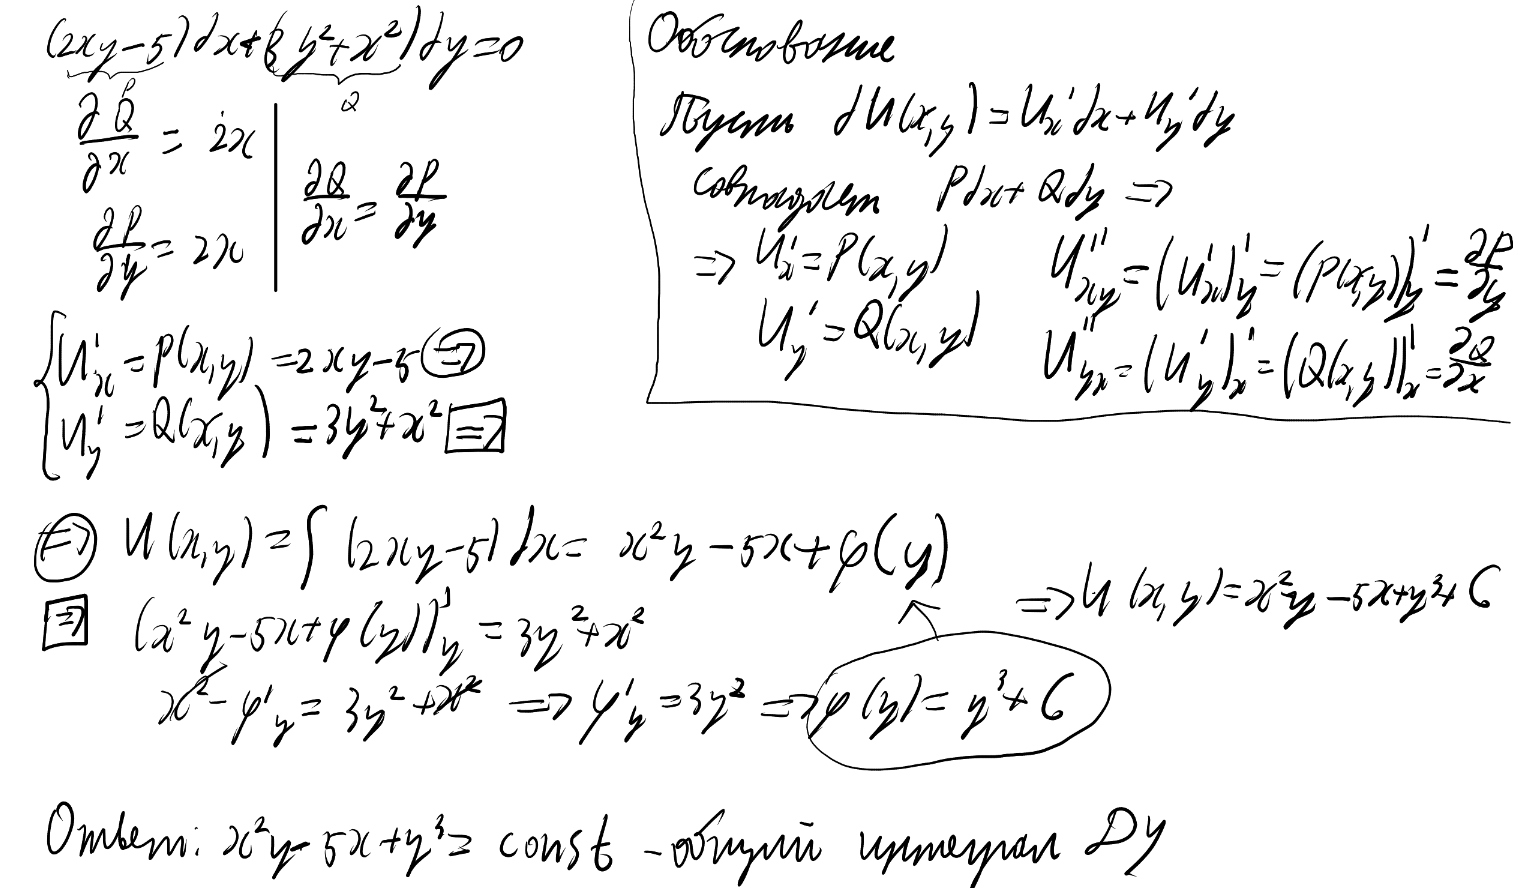 (2xy-5)dx+(3y²+x²)dy=0
P
Q
∂Q/∂x = 2x
∂P/∂y = 2x
∂Q/∂x = ∂P/∂y
Обоснование
Пусть dU(x,y)=U'ₓdx+U'ᵧdy
совпадает Pdx+Qdy ⇒
⇒ U'ₓ=P(x,y)
U'ᵧ=Q(x,y)
U''ₓᵧ=(U'ₓ)'ᵧ=(P(x,y))'ᵧ=∂P/∂y
U''ᵧₓ=(U'ᵧ)'ₓ=(Q(x,y))'ₓ=∂Q/∂x
{ U'ₓ=P(x,y)=2xy-5 ⇒
U'ᵧ=Q(x,y)=3y²+x² ⇒
⇒ U(x,y)=∫(2xy-5)dx= x²y-5x+φ(y)
⇒ (x²y-5x+φ(y))'ᵧ=3y²+x²
x²-φ'ᵧ=3y²+x² ⇒ φ'ᵧ=3y² ⇒ φ(y)=y³+C
⇒ U(x,y)=x²y-5x+y³+C
Ответ: x²y-5x+y³= const - общий интеграл ДУ